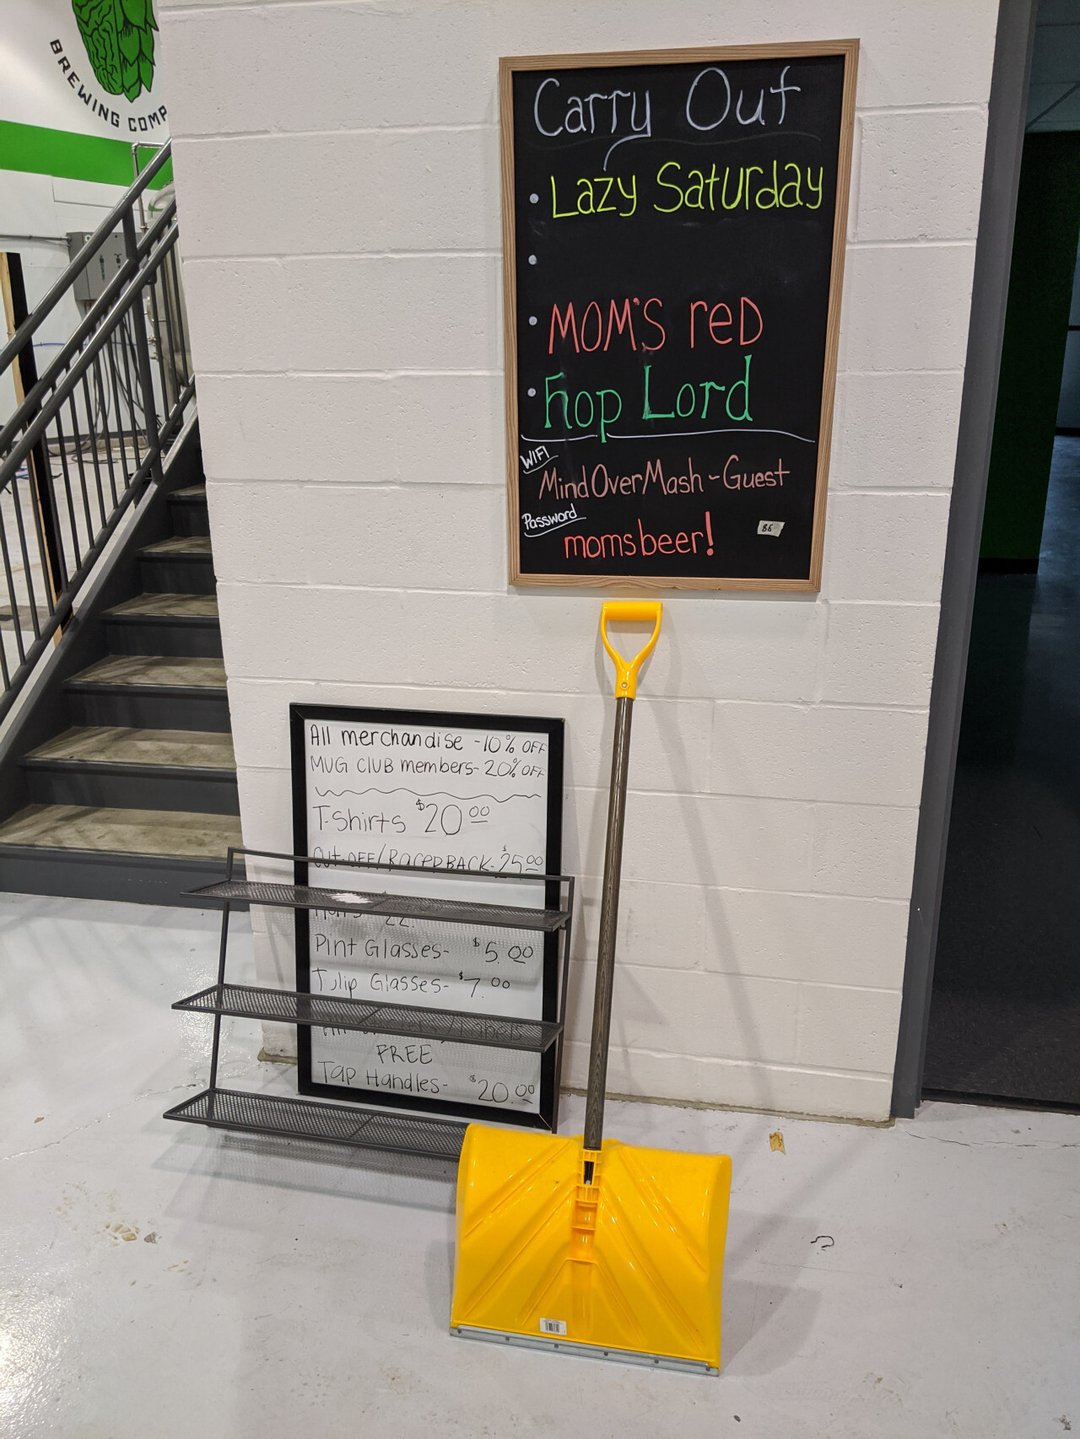 BREWING COMP
Carry Out
Lazy Saturday
MOM'S reD
hop Lord
WIFI
MindOverMash-Guest
Password
momsbeer!
86
All merchandise - 10% OFF
MUG CLUB members- 20% OFF
T-Shirts $20.00
CUT-OFF/RACERBACK- $25.00
22.
Pint Glasses- $5.00
Tulip Glasses- $7.00
FREE
Tap Handles- $20.00